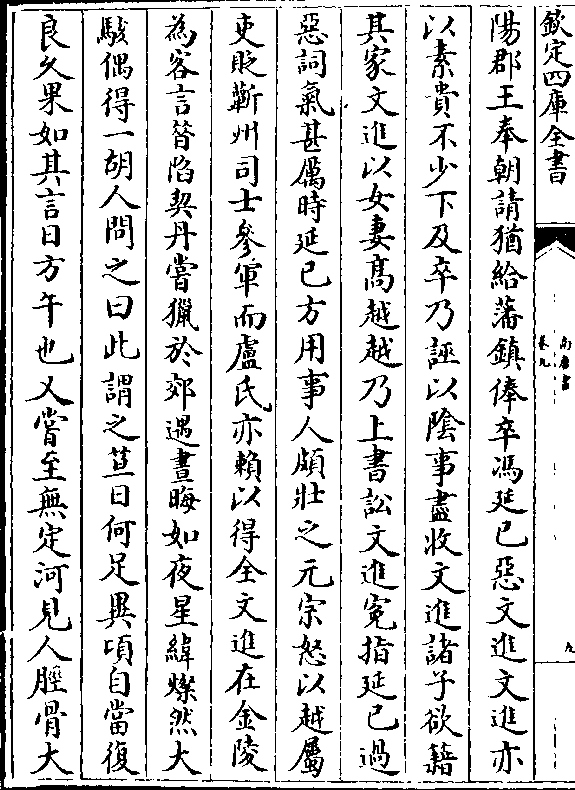 欽定四庫全書
南唐書
卷九
九
陽郡王奉朝請猶給藩鎮俸卒馮延已惡文進文進亦
以素貴不少下及卒乃誣以隂事盡收文進諸子欲籍
其家文進以女妻髙越越乃上書訟文進寃指延已過
惡詞氣甚厲時延已方用事人頗壯之元宗怒以越屬
吏貶蘄州司士參軍而盧氏亦賴以得全文進在金陵
為客言昔陷契丹嘗獵於郊遇晝晦如夜星緯燦然大
駭偶得一胡人問之曰此謂之笪日何足異頃自當復
良久果如其言日方午也又嘗至無定河見人脛骨大